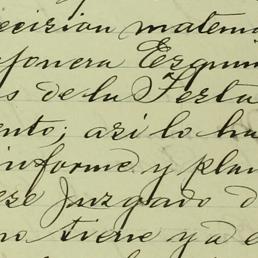 ecision matem
ajonera Esqui
s de la Testa
ento; asi lo ha
informe y plan
ese Juzgado d
no tiene ya e